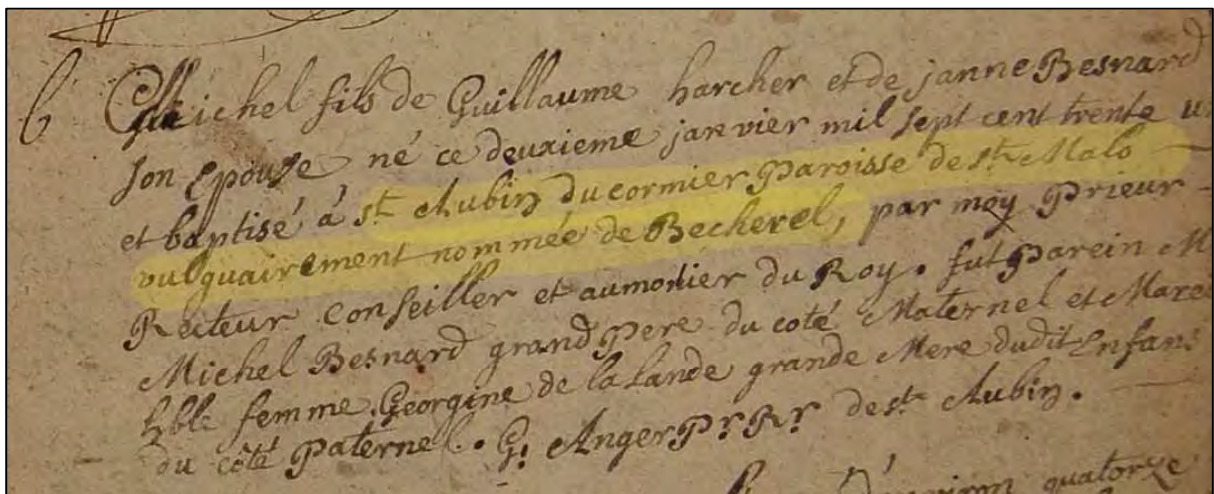 b Michel fils de Guillaume harcher et de janne Besnard
son Epouse né ce deuxieme janvier mil sept cent trente u
et baptisé à st Aubin du cormier Paroisse de st Malo
vulguairement nommée de Becherel, par moy Prieur
Recteur conseiller et aumonier du Roy. fut Parein M
Michel Besnard grand Pere du coté Maternel et Mare
hble femme Georgine de la Lande grande Mere dudit Enfans
du côté Paternel. G. Anger Pr Rr de st Aubin.
d'environ quatorze